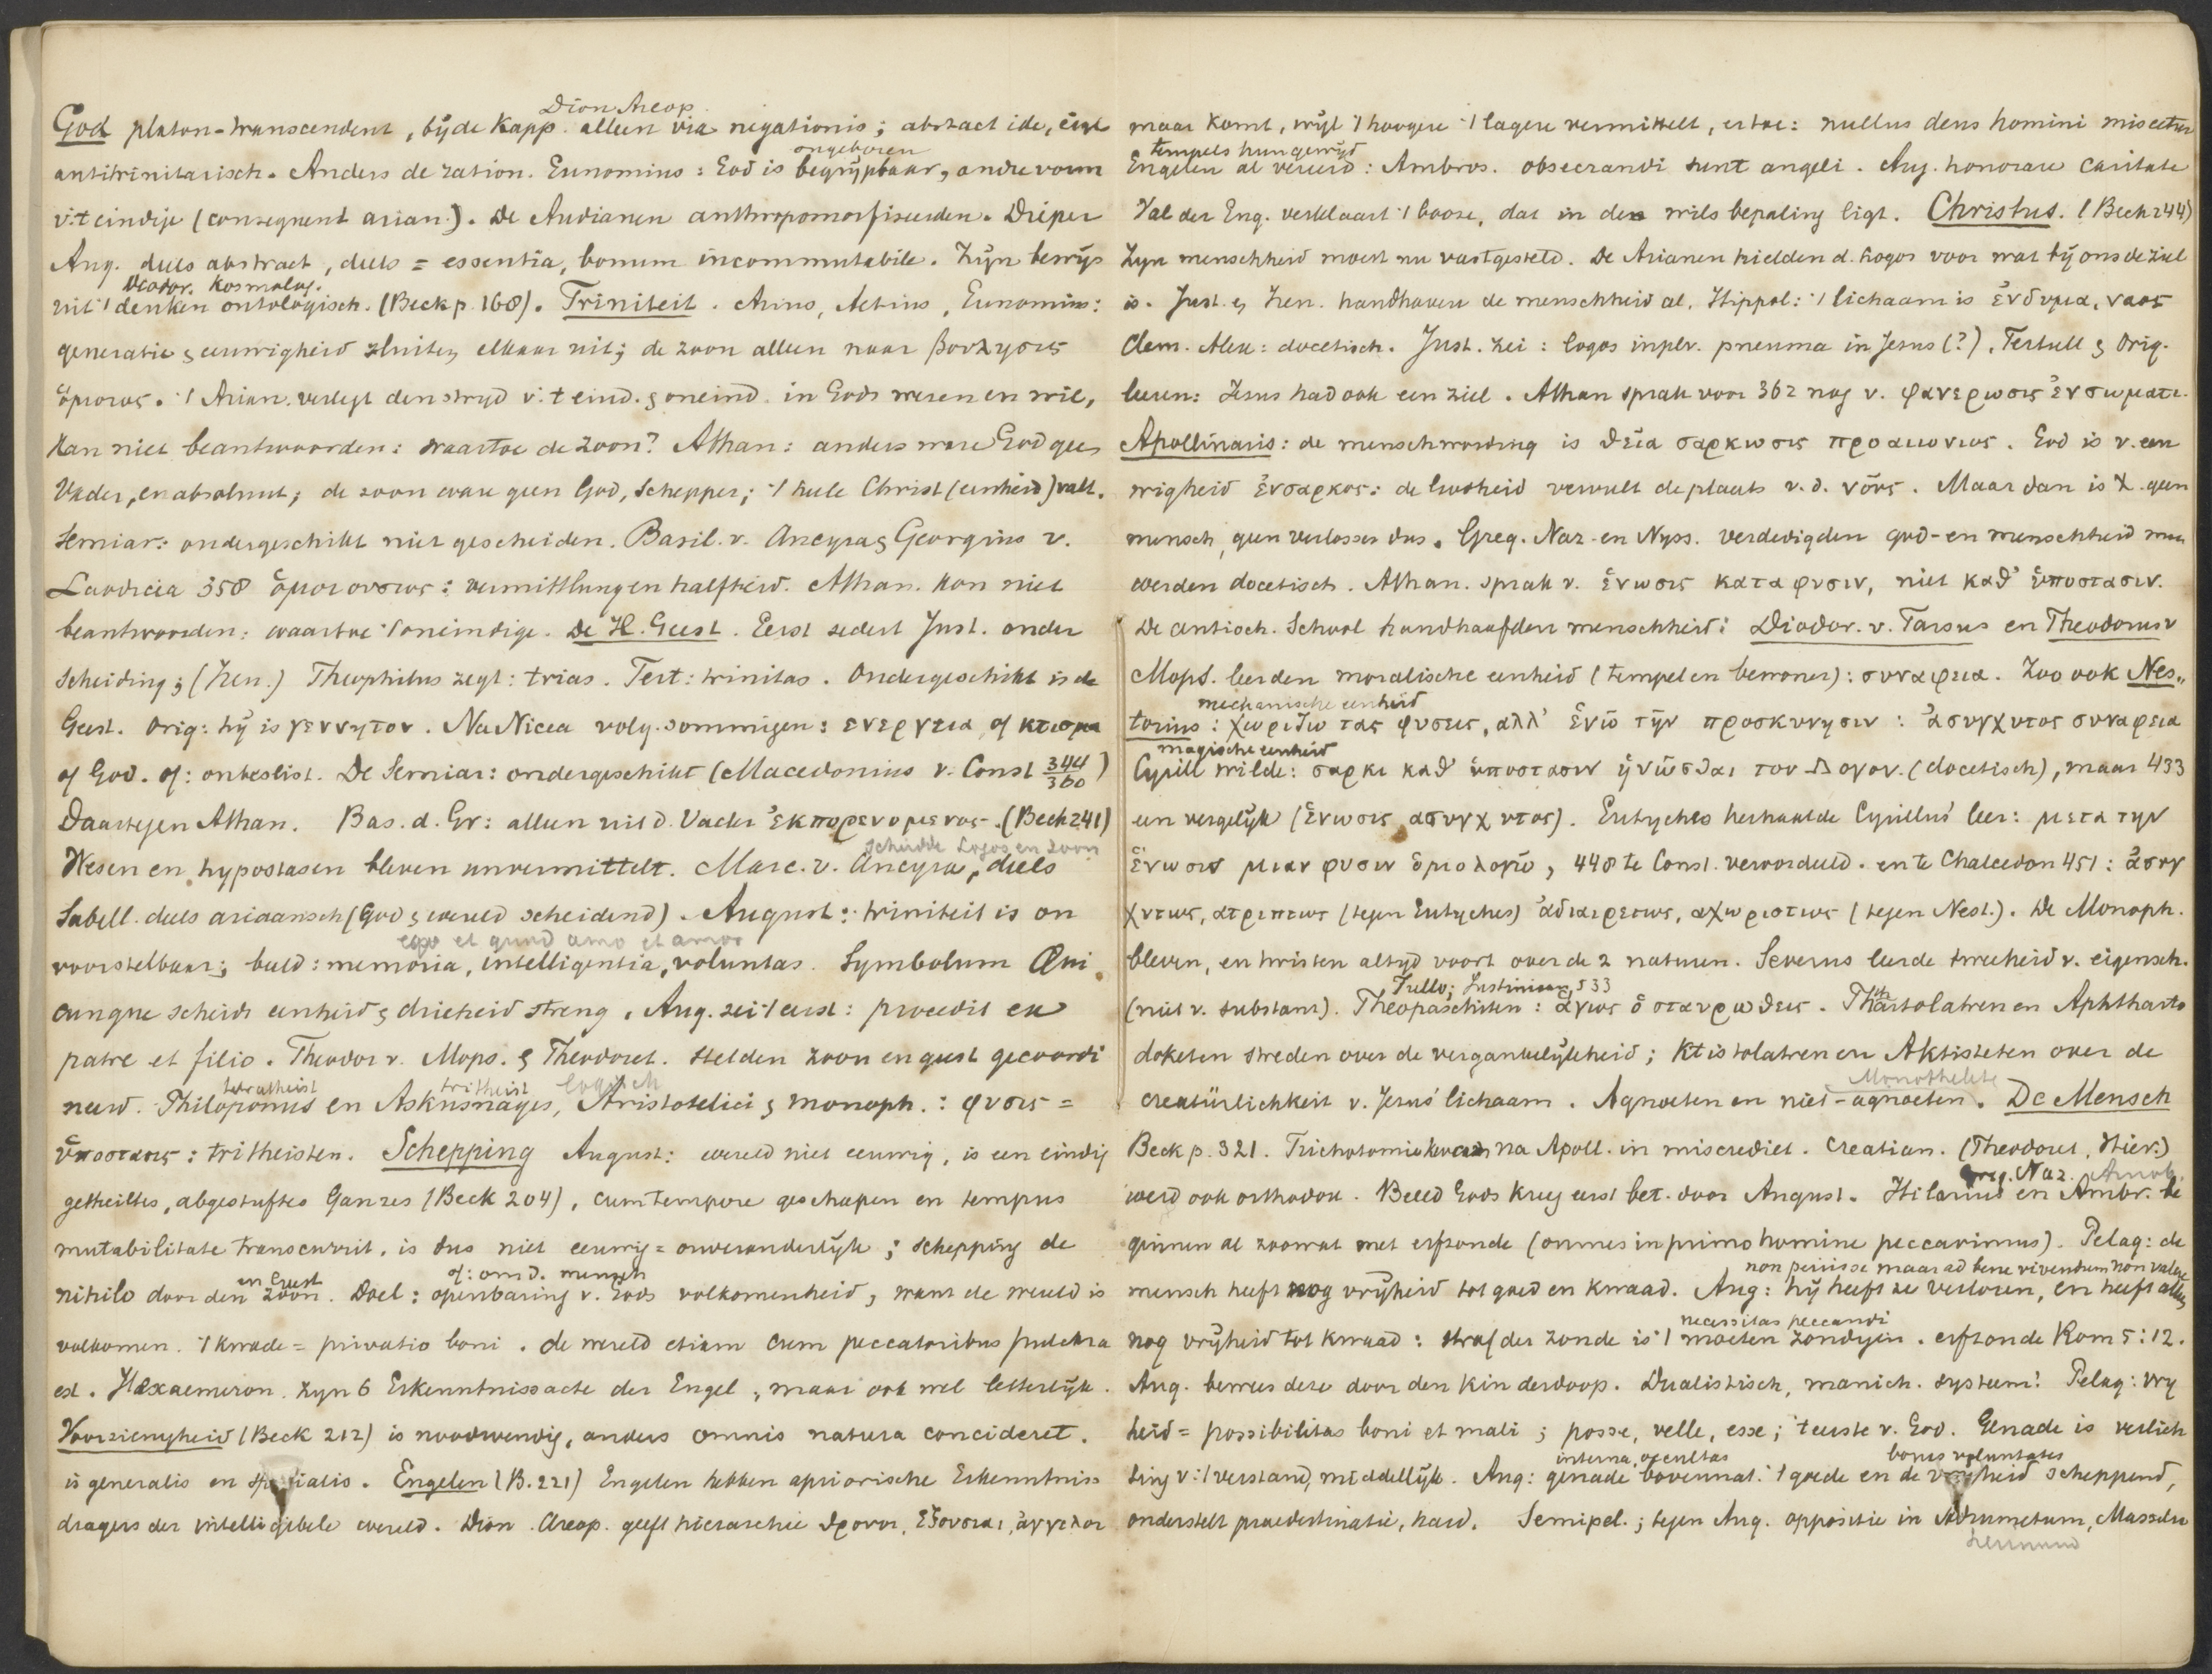 Dion Areop.
God platon-transcendent, bij de Kapp. alleen via negationis; abstract idee, eigl
ongeboren
antitrinitarisch. Anders de ration. Eunomius: God is begrijpbaar, andre vorm
v.'t eindige (consequent arian.). De Audianen anthropomorfiseerden. Dieper
Aug. deels abstract, deels = essentia, bonum incommutabile. Zijn bewijs
Diodor. kosmolog.
uit 't denken ontologisch. (Beck p. 168). Triniteit. Arius, Aetius, Eunomius:
generatie & eeuwigheid sluiten elkaar uit; de zoon alleen naar βουλησις
ὁμοιος. 't Arian. verlegt den strijd v. 't eind. & oneind. in Gods wezen en wil,
kan niet beantwoorden: waartoe de zoon? Athan: anders ware God geen
Vader, en absoluut; de zoon ware geen God, Schepper; 't heele Christ (eenheid) valt.
Semiar: ondergeschikt niet gescheiden. Basil. v. Ancyra & Georgius v.
Laodicia 358 ὁμοιουσιος: vermittlung en halfheid. Athan. kon niet
beantwoorden: waartoe 't oneindige. De H. Geest. Eerst sedert Just. onder
scheiding; (Iren.) Theophilus zegt: trias. Tert: trinitas. Ondergeschikt is de
Geest. Orig: hij is γεννητον. Na Nicea volg. sommigen: ενεργεια, of κτισμα
of God. of: onbeslist. De Semiar: ondergeschikt (Macedonius v. Const 344/360)
Daartegen Athan. Bas. d. Gr: alleen uit d. Vader ἐκπορευομενος. (Beck 241)
scheidde Logos en zoon
Wesen en hypostasen bleven unvermittelt. Marc. v. Ancyra, deels
Sabell. deels ariaansch (God & wereld scheidend). August: triniteit is on
ego et quod amo et amor
voorstelbaar; beeld: memoria, intelligentia, voluntas. Symbolum Qui
cunque scheidt eenheid & drieheid streng. Aug. zei 't eerst: procedit ex
patre et filio. Theodor v. Mops. & Theodoret. stelden zoon en geest gecoordi
tetratheist tritheist logisch
neerd. Philoponus en Askusnages, Aristotelici & monoph.: φυσις =
ὑποστασις: tritheisten. Schepping August: wereld niet eeuwig, is een eindig
getheiltes, abgestuftes Ganzes (Beck 204), cum tempore geschapen en tempus
mutabilitate transcurrit, is dus niet eeuwig = onveranderlijk; schepping de
en Geest of: om d. mensch
nihilo door den zoon. Doel: openbaring v. Gods volkomenheid, want de wereld is
volkomen. 't kwade = privatio boni. de wereld etiam cum peccatoribus pulchra
est. Hexaemeron. Zijn 6 Erkenntnissacte der Engel, maar ook wel letterlijk.
Voorzienigheid (Beck 212) is noodwendig, anders omnis natura concideret.
is generalis en specialis. Engelen (B. 221) Engelen hebben apriorische Erkenntniss
dragers der intelligibele wereld. Dion. Areop. geeft hierarchie θρονοι, ἐξουσιαι, ἀγγελοι
maar komt, wijl 't hoogere 't lagere vermittelt, ertoe: nullus deus homini miscetur
tempels hun gewijd
Engelen al vereerd: Ambros. obsecrandi sunt angeli. Aug. honorare caritate
Val der Eng. verklaart 't booze, dat in de wilsbepaling ligt. Christus. (Beck 244)
Zijn menschheid moest nu vastgesteld. De Arianen hielden d. Logos voor wat bij ons de ziel
is. Just. & Iren. handhaven de menschheid al. Hippol: 't lichaam is ἐνδυμα, ναος
Clem. Alex: docetisch. Just. zei: logos inplv. pneuma in Jesus (?). Tertull & Orig.
leeren: Jesus had ook een ziel. Athan sprak voor 362 nog v. φανερωσις ἐν σωματι.
Apollinaris: de menschwording is θεια σαρκωσις προαιωνιος. God is v. eeu
wigheid ἐνσαρκος: de Godheid vervult de plaats v. d. νους. Maar dan is X. geen
mensch, geen verlosser dus. Greg. Naz. en Nyss. verdedigden god- en menschheid maar
werden docetisch. Athan. sprak v. ἑνωσις κατα φυσιν, niet καθ' ὑποστασιν.
De antioch. School handhaafden menschheid: Diodor. v. Tarsus en Theodorus v
Mops. leerden moralische eenheid (tempel en bewoner): συναφεια. Zoo ook Nes„
mechanische eenheid
torius: χωριζω τας φυσεις, αλλ' ἑνω την προσκυνησιν: ἀσυγχυτος συναφεια
magische eenheid
Cyrill wilde: σαρκι καθ' ὑποστασιν ἡνωσθαι τον Λογον. (docetisch), maar 433
een vergelijk (ἑνωσις ασυγχυτος). Eutyches herhaalde Cyrillus' leer: μετα την
ἑνωσιν μιαν φυσιν ὁμολογω, 448 te Const. veroordeeld. en te Chalcedon 451: ἀσυγ
χυτως, ατρεπτως (tegen Eutyches) ἀδιαιρετως, αχωριστως (tegen Nest.). De Monoph.
bleven, en twisten altijd voort over de 2 naturen. Severus leerde tweeheid v. eigensch.
Fullo; Justinian, 533
(niet v. substant). Theopaschiten: ἁγιος ὁ σταυρωθεις. Phthartolatren en Aphtharto
doketen streden over de vergankelijkheid; Ktistolatren en Aktisteten over de
Monothelete
creatürlichkeit v. Jesus' lichaam. Agnoeten en niet-agnoeten. De Mensch
Beck p. 321. Trichotomie kwam na Apoll. in miscrediet. Creatian. (Theodoret, Hier.)
Greg. Naz. Arnob.
werd ook orthodox. Beeld Gods kreeg eerst bet. door August. Hilarius en Ambr. be
ginnen al zoowat met erfzonde (omnes in primo homine peccavimus). Pelag: de
non periisse maar ad bene vivendum non valere
mensch heeft nog vrijheid tot goed en kwaad. Aug: hij heeft ze verloren, en heeft alleen
necessitas peccandi
nog vrijheid tot kwaad: straf der zonde is 't moeten zondigen. erfzonde Rom 5:12.
Aug. bewees deze door den kinderdoop. Dualistisch, manich. systeem! Pelag: vrij
heid = possibilitas boni et mali; posse, velle, esse; 't eerste v. God. Genade is verlich
interna, occultas bonas voluntates
ting v. 't verstand, middellijk. Aug: genade bovennat. 't goede en de vrijheid scheppend,
onderstelt praedestinatie, hard. Semipel.; tegen Aug. oppositie in Adrumetum, Massilia